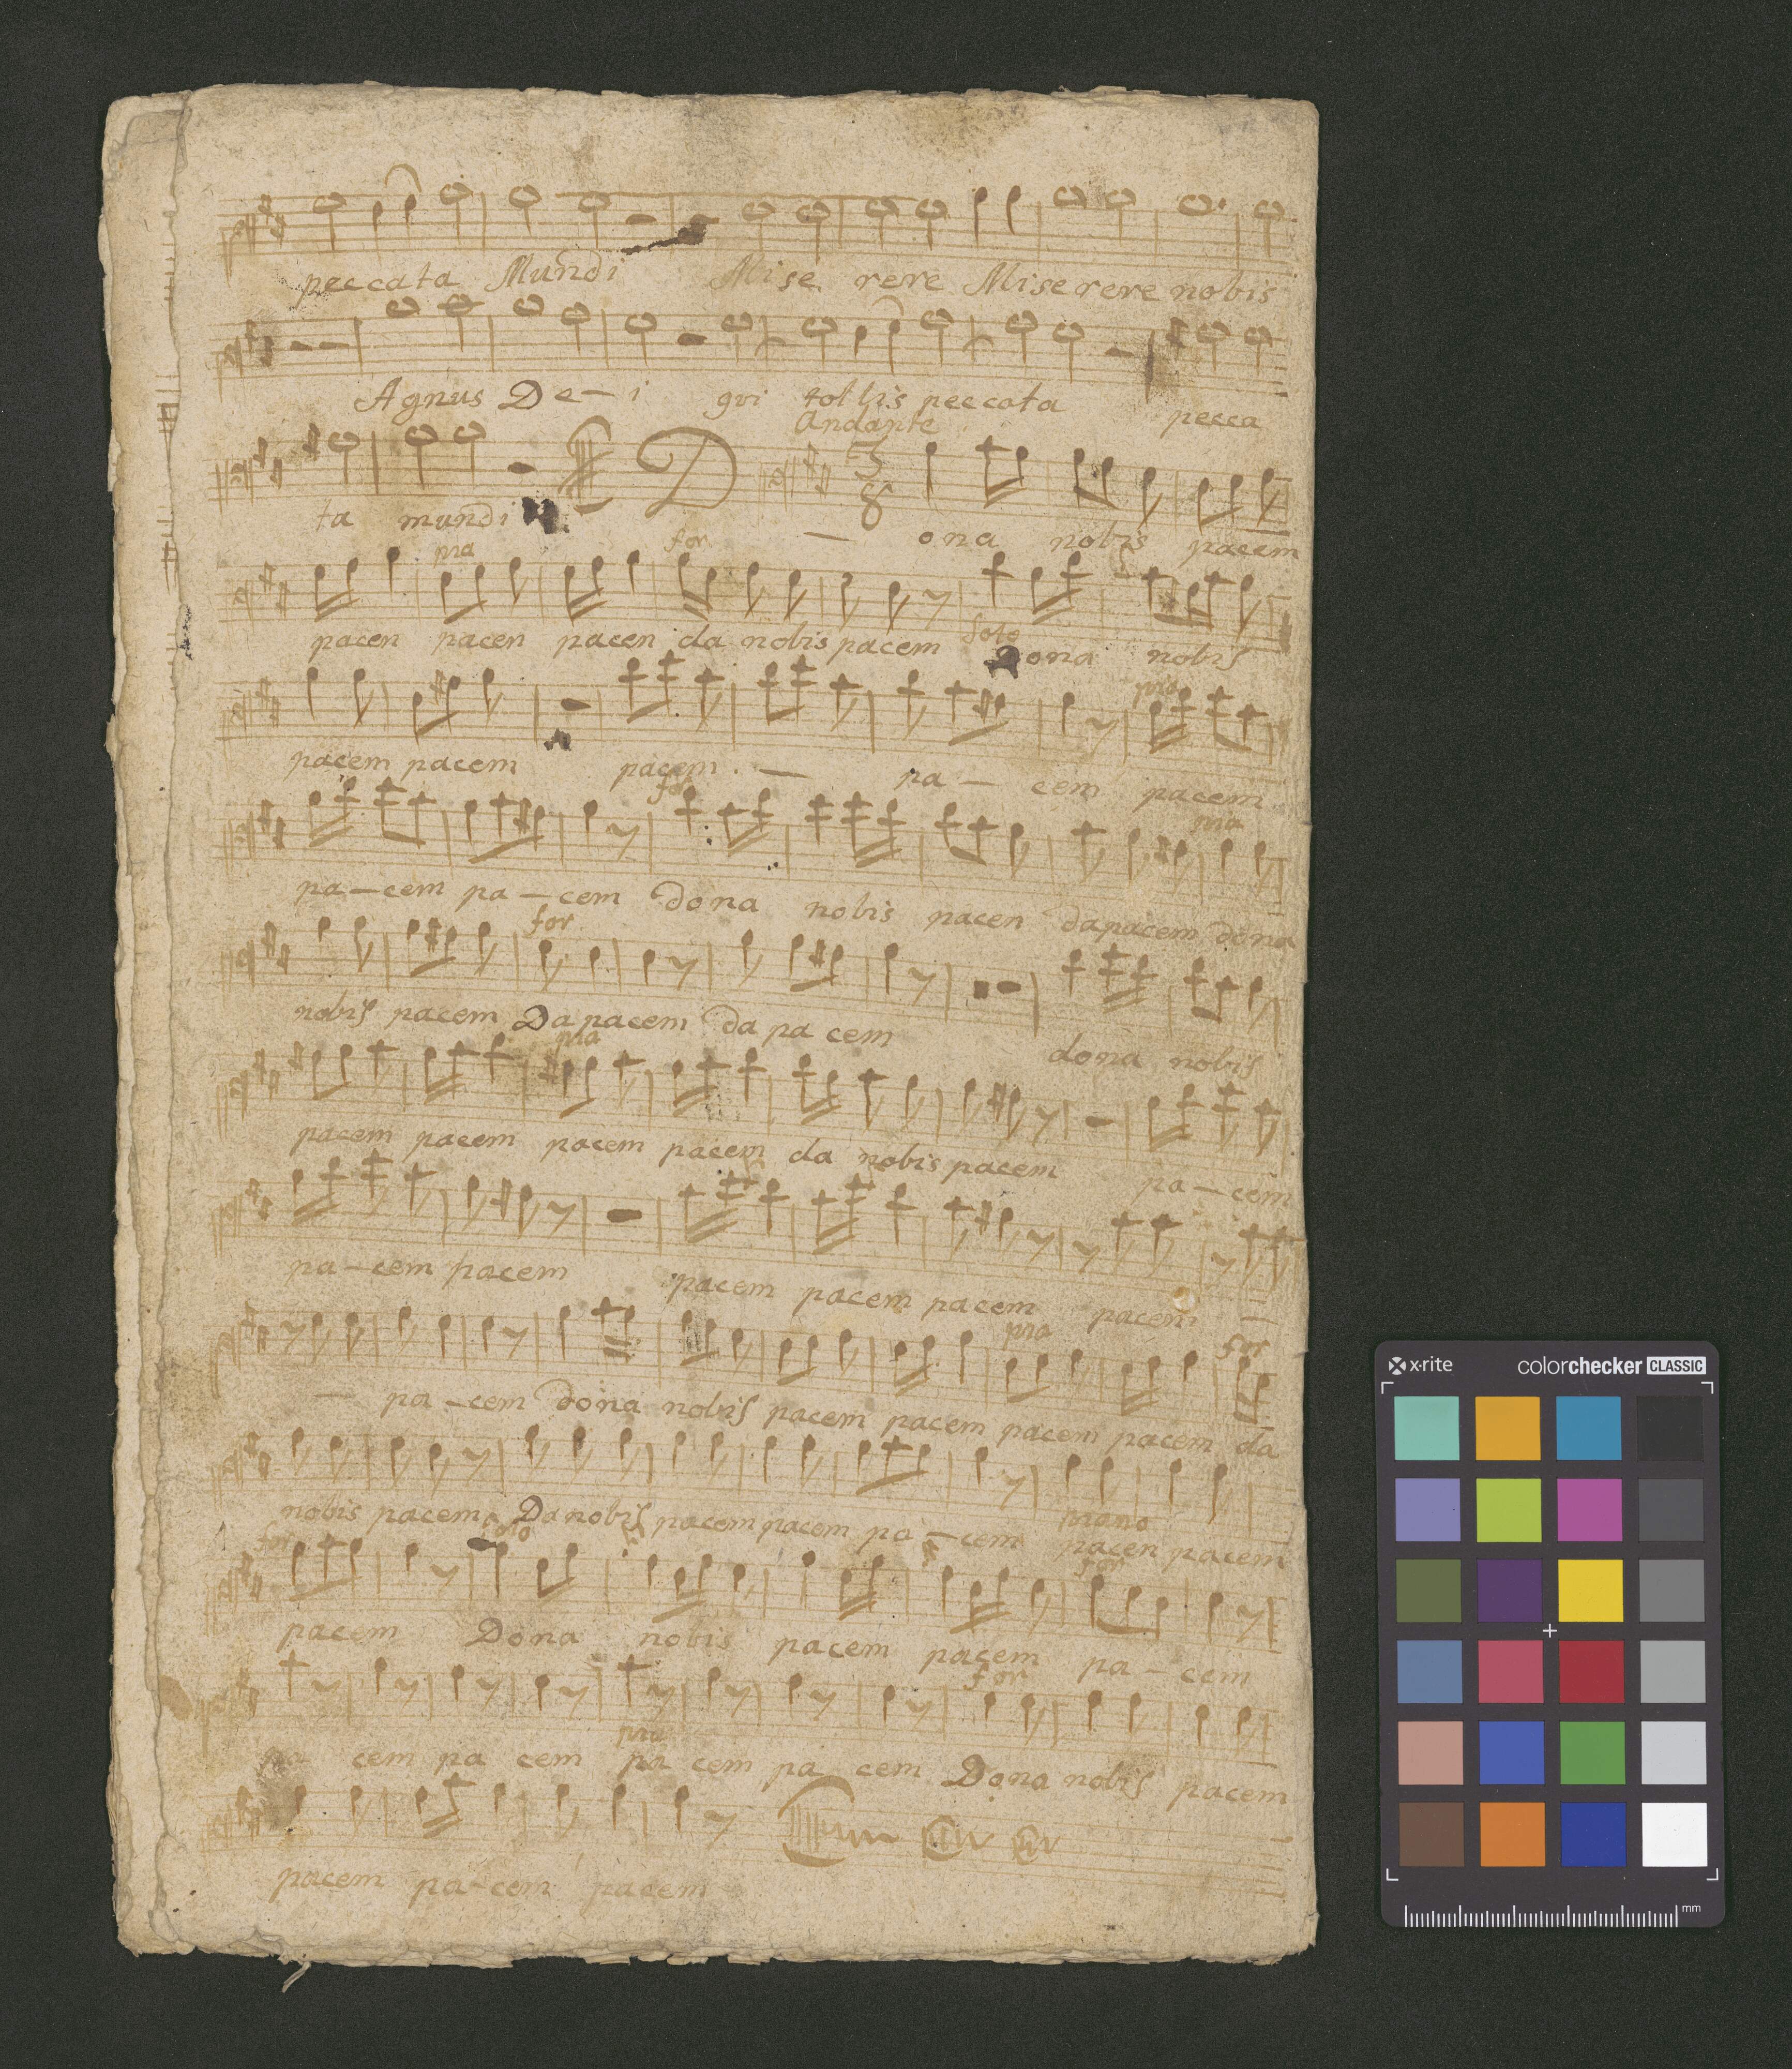 peccata Mundi Mise rere Miserere nobis
Agnus De-i qui tollis peccata pecca
Andante
3
8
D
ta mundi — ona nobis pacem
pia for
pacen pacen pacen da nobis pacem Dona nobis
solo
pia
pacem pacem pacem. — pa — cem pacem
for
pia
pa-cem pa-cem dona nobis pacen da pacem dona
for
nobis pacem Da pacem da pa cem dona nobis
pia
pacem pacem pacem pacem da nobis pacem pa-cem
pa-cem pacem pacem pacem pacem pacem —
pia for
— pa-cem dona nobis pacem pacem pacem pacem da
nobis pacem Da nobis pacem pacem pa-cem pacen pacem
piano
for solo for
pacem Dona nobis pacem pacem pa-cem
for
pa cem pa cem pa cem pa cem Dona nobis pacem
pia
pacem pa-cem pacem
x-rite colorchecker CLASSIC
mm